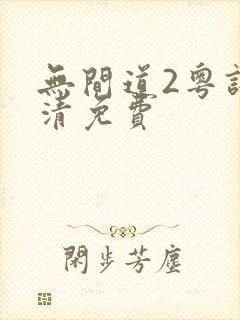 無間道2粵
清免費
閑步芳塵